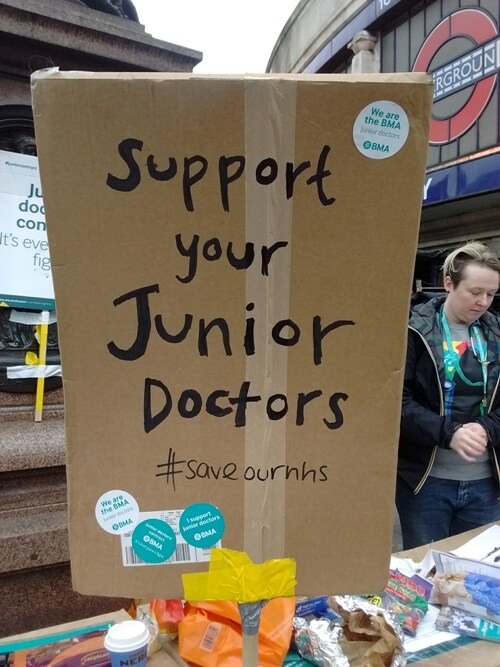 Support
your
Junior
Doctors
#saveournhs
We are
the BMA
junior doctors
BMA
We are
the BMA
junior doctors
BMA
BMA
I support
junior doctors
BMA
RGROUN
Ju
doc
con
It's eve
fig
NER